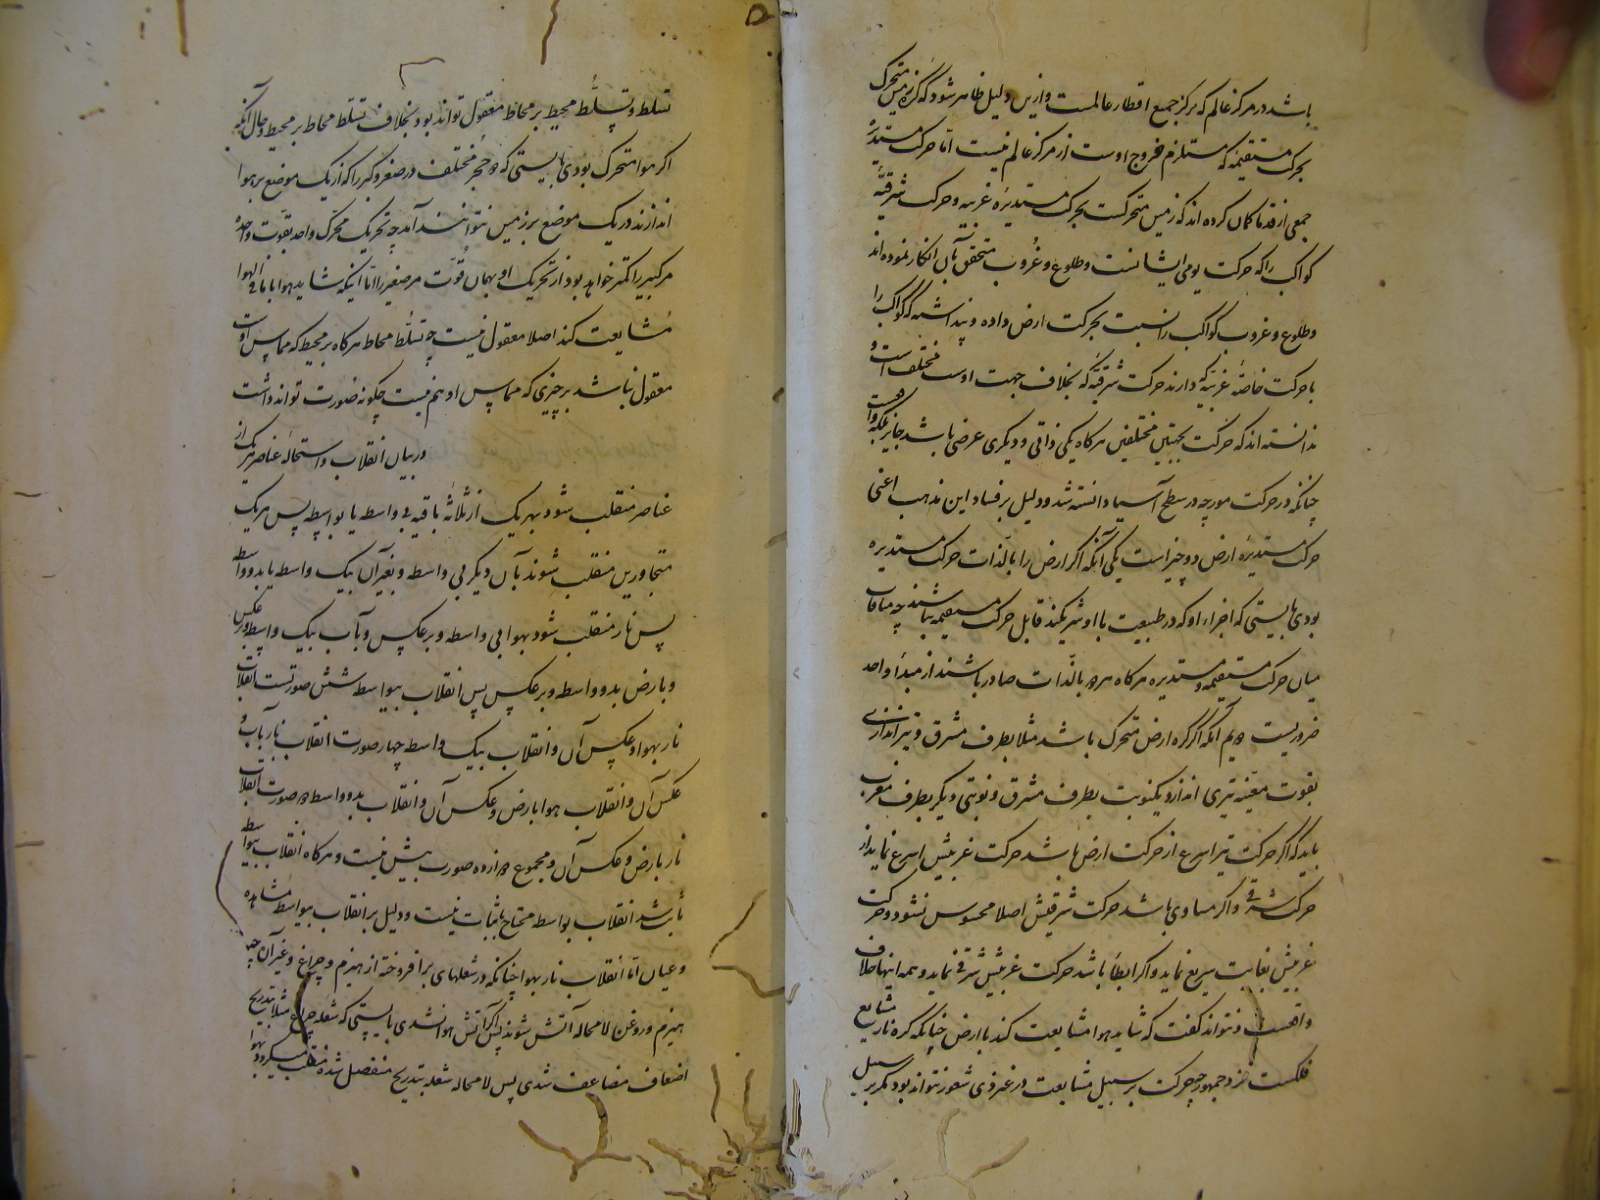 باشد در مرکز عالم که مرکز جمیع اقطار عالمست و ازین دلیل ظاهر شود که کره زمین متحرک
بحرکت مستقیمه که مستلزم خروج اوست از مرکز عالم نیست اما حرکت مستدیره
جمعی از قدما کمان کرده اند که زمین متحرکست بحرکت مستدیره غربیه و حرکت شرقیه
کواکب را که حرکت یومی ایشانست و طلوع و غروب متحقق بآن انکار نموده اند
و طلوع و غروب کواکب را نسبت بحرکت ارض داده و پنداشته که کواکب را
با حرکت خاصه غربیه که دارند حرکت شرقیه که بخلاف جهت اوست مختلف است و
ندانسته اند که حرکت بجهتین مختلفین هرکاه یکی ذاتی و دیگری عرضی باشد جایز بلکه واقعست
چنانکه در حرکت مورچه در سطح آسیا دانسته شد و دلیل بر فساد این مذهب اعنی
حرکت مستدیره ارض دو چیز است یکی آنکه اگر ارض را بالذات حرکت مستدیره
بودی بایستی که اجزاء او که در طبیعت با او شریکند قابل حرکت مستقیمه نباشند چه منافات
میان حرکت مستقیمه و مستدیره هرکاه هر دو بالذات صادر باشند از مبدأ واحد
ضروریست دویم آنکه اگر کره ارض متحرک باشد مثلا بطرف مشرق و تیراندازی
بقوت معینه تیری اندازد یکنوبت بطرف مشرق و نوبتی دیگر بطرف مغرب
باید که اگر حرکت تیر اسرع از حرکت ارض باشد حرکت غربیش اسرع نماید از
حرکت شرقی و اگر مساوی باشد حرکت شرقیش اصلا محسوس نشود و حرکت
غربیش بغایت سریع نماید و اگر ابطأ باشد حرکت غربیش شرقی نماید و همه اینها خلاف
واقعست و نتواند گفت که شاید هوا مشایعت کند با ارض چنانکه کره نار مشایع
فلکست نزد جمهور چه حرکت بر سبیل مشایعت در غیر ذی شعور نتواند بود مگر بر سبیل
تسلط و تسلط محیط بر محاط معقول تواند بود بخلاف تسلط محاط بر محیط و حال آنکه
اگر هوا متحرک بودی بایستی که دو حجر مختلف در صغر و کبر را که از یک موضع بر هوا
اندازند در یک موضع بر زمین نتوانند آمد چه تحریک محرک واحد بقوت واحده
مر کبیر را کمتر خواهد بود از تحریک او بهمان قوت مر صغیر را اما اینکه شاید هوا با ما فی الهوا
مشایعت کند اصلا معقول نیست چه تسلط محاط هرکاه بر محیط که مماس اوست
معقول نباشد بر چیزی که مماس او هم نیست چگونه صورت تواند داشت
در بیان انقلاب و استحاله عناصر هر یک از
عناصر منقلب شود بهر یک از ثلاثه باقیه بی واسطه یا بواسطه پس هر یک
متجاورین منقلب شوند بآن دیگر بی واسطه و بغیر آن بیک واسطه یا بدو واسطه
پس نار منقلب شود بهوا بی واسطه و برعکس و بآب بیک واسطه و برعکس
و بارض بدو واسطه و برعکس پس انقلاب بیواسطه شش صورتست انقلاب
نار بهوا و عکس آن و انقلاب بیک واسطه چهار صورت انقلاب نار بآب و
عکس آن و انقلاب هوا بارض و عکس آن و انقلاب بدو واسطه دو صورت انقلاب
نار بارض و عکس آن و مجموع دوازده صورت بیش نیست و هرکاه انقلاب بیواسطه
ثابت شد انقلاب بواسطه محتاج باثبات نیست و دلیل بر انقلاب بیواسطه مشاهده
و عیان اما انقلاب نار بهوا چنانکه در شعلهای برافروخته از هیزم و چراغ و غیر آن چه
هیزم و روغن لا محاله آتش شوند پس اگر آتش هوا نشدی بایستی که شعله چراغ مثلا بتدریج
اضعاف مضاعف شدی پس لا محاله شعله بتدریج منفصل شده منقلب میگردد بهوا